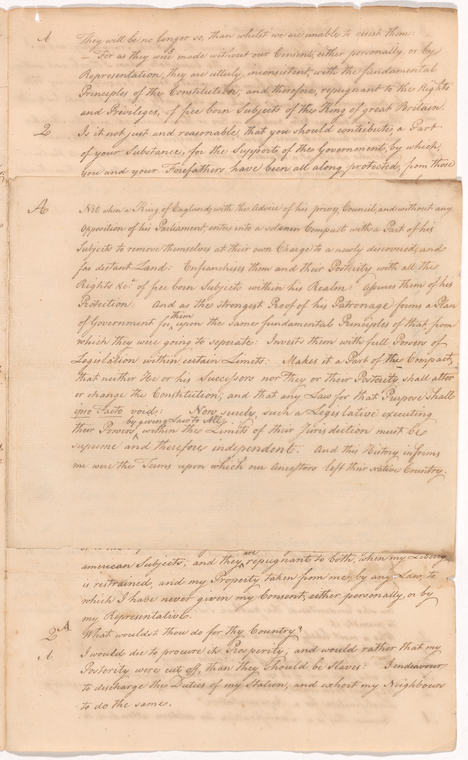 A They will be no longer so, than whilst we are unable to resist them:
— For as they were made without our Consent, either personally or by
Representation, they are utterly inconsistent with the fundamental
Principles of the Constitution; and therefore, repugnant to the Rights
and Privileges, of free born Subjects of the King of great Britain.
Q Is it not just and reasonable, that you should contribute, a Part
of your Substance, for the Supports of the Government, by which,
you and your Forefathers have been all along protected, from those
A Not when a King of England, with the Advice of his privy Council, and without any
Opposition of his Parliament, enters into a solemn Compact with a Part of his
Subjects to remove themselves at their own Charge to a newly discovered, and
far distant Land: Enfranchises them and their Posterity with all the
Rights &c.a of free born Subjects within his Realm: Assures them of his
Protection: And as the strongest Proof of his Patronage forms a Plan
of Government for them, upon the same fundamental Principles of that, from
which they were going to seperate: Invests them with full Powers of
Legislation within certain Limits: Makes it a Part of the Compact,
that neither He or his Successors nor They or their Posterity shall alter
or change the Constitution, and that any Law for that Purpose shall
ipso Facto void: Now surely, such a Legislative executing
their Powers by giving Law to All, within the Limits of their Jurisdiction must be
supreme and therefore independent. And this History informs
me were the Terms upon which our Ancestors left their native Country.
american Subjects; and they are repugnant to both, when my Liberty
is restrained, and my Property taken from me, by any Law, to
which I have never given my Consent, either personally, or by
my Representative.
Q What wouldst thou do for thy Country?
A I would die to procure its Prosperity; and would rather that my
Posterity were cut off, than they should be Slaves: I endeavour
to discharge the Duties of my Station, and exhort my Neighbour
to do the same.